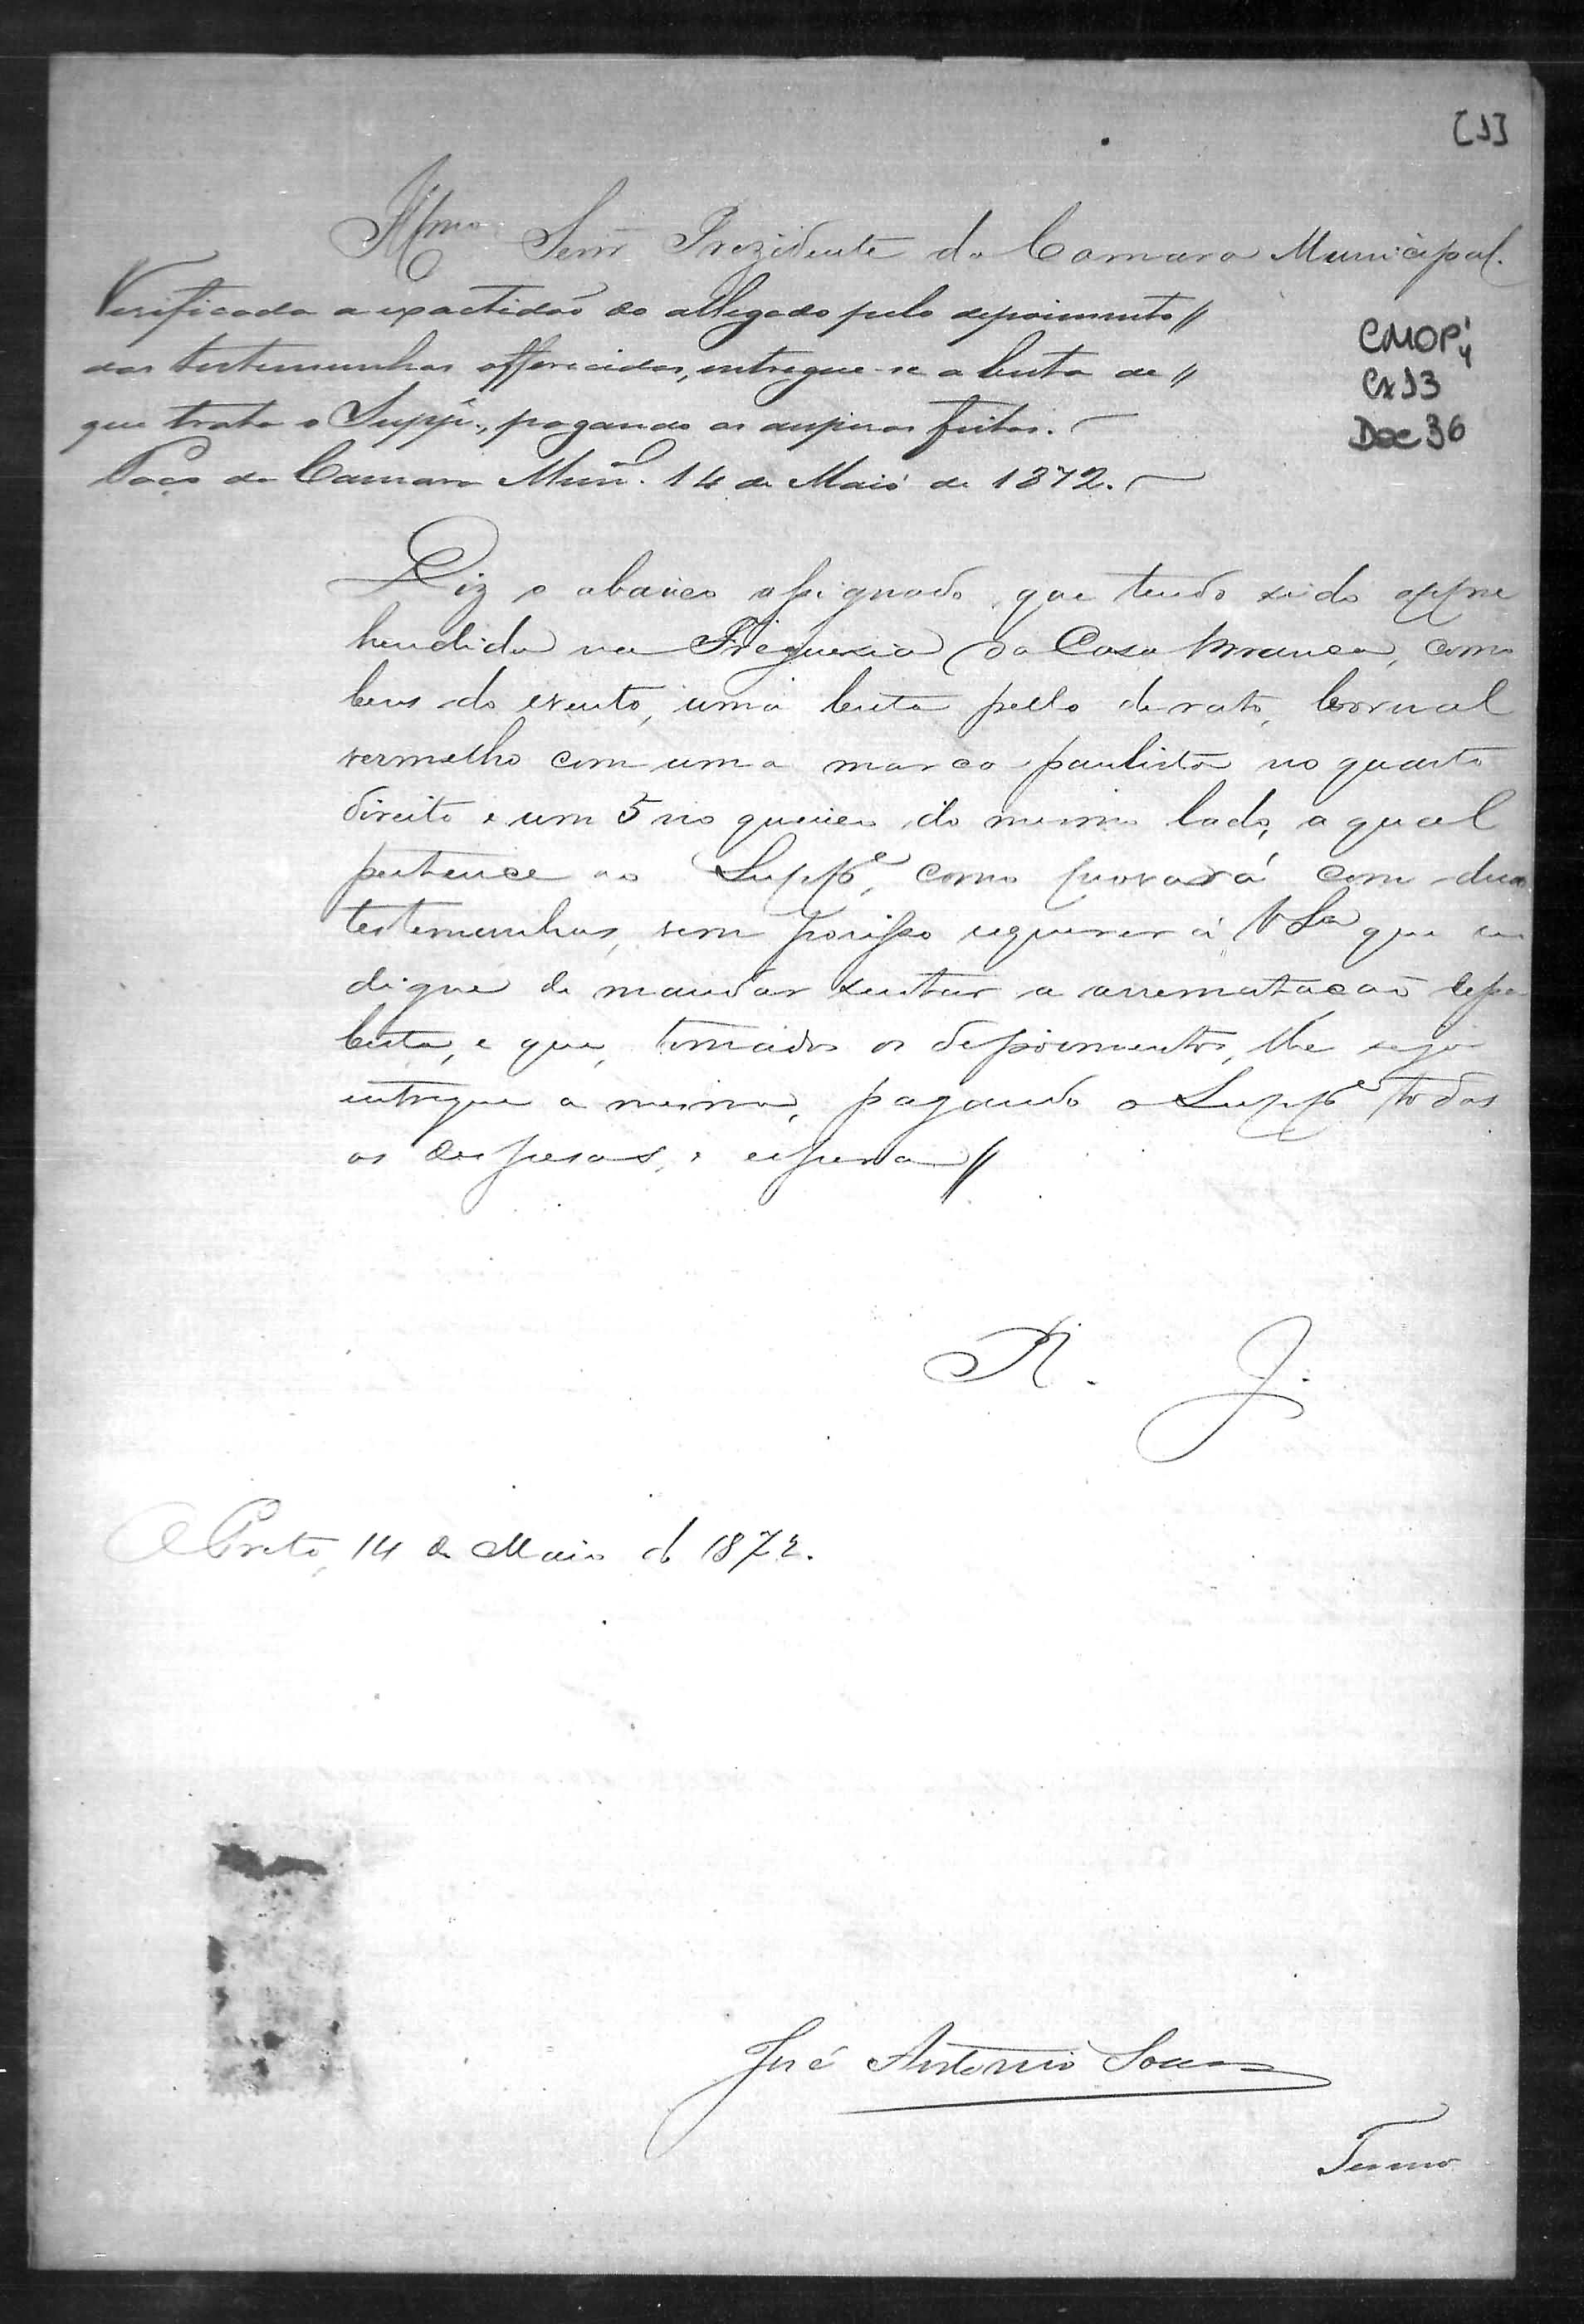 [1]
Illmo Senr Prezidente da Camara Municipal.
Verificada a exactidaõ do allegado pelo depoimento //
das testemunhas offerecidas, entregue-se a besta de //
que trata o Suppe., pagando as despesas feitas.
Paço da Camara Mun. 14 de Maio de 1872.
CMOP
Cx 13
Doc 36
Diz o abaixo assignado, que tendo sido appre
hendida na Freguezia da Casa Branca, como
bens do evento, uma besta pello de rato, bornal
vermelho com uma marca paulista no quarto
direito e um 5 no queixo do mesmo lado, a qual
pertence ao Suppe, como provará com duas
testemunhas, vem por isso requerer á VSa que se
digne de mandar sustar a arremataçaõ dessa
besta, e que, tomados os depoimentos, lhe seja
entregue a mesma, pagando o Suppe todas
as despesas, e espera //
R. J.
O Preto, 14 de Maio de 1872.
José Antonio Souza
Termo